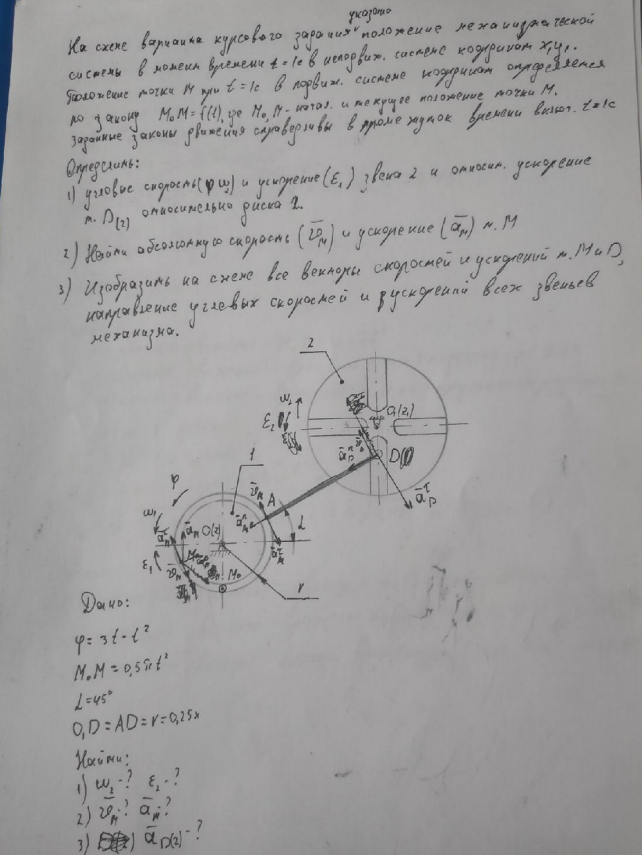 указано
На схеме варианта курсового задания положение механической
системы в момент времени t = 1с в неподвиж. системе координат x,y,.
Положение точки M при t = 1c в подвиж. системе координат определяется
по закону M₀M = f(t), где M₀, M - начал. и текущее положение точки M.
Заданные законы движения справедливы в промежуток времени включ. t = 1c
Определить:
1) угловые скорость и ускорение (ε₁) звена 2 и относит. ускорение
т. D(2) относительно диска 2.
2) Найти абсолютную скорость (v̄M) и ускорение (āM) т. M
3) Изобразить на схеме все векторы скоростей и ускорений т. M и D,
направление угловых скоростей и ускорений всех звеньев
механизма.
2
ω₂
ε₂
O₁(z₁)
D
āⁿD
āᵗD
1
φ
ω₁
A
L
O(z)
ε₁
M
M₀
r
Дано:
φ = 3t - t²
M₀M = 0,5πt²
L = 45°
O₁D = AD = r = 0,25м
Найти:
1) ω₂ - ? ε₂ - ?
2) v̄M - ? āM - ?
3) āD(2) - ?